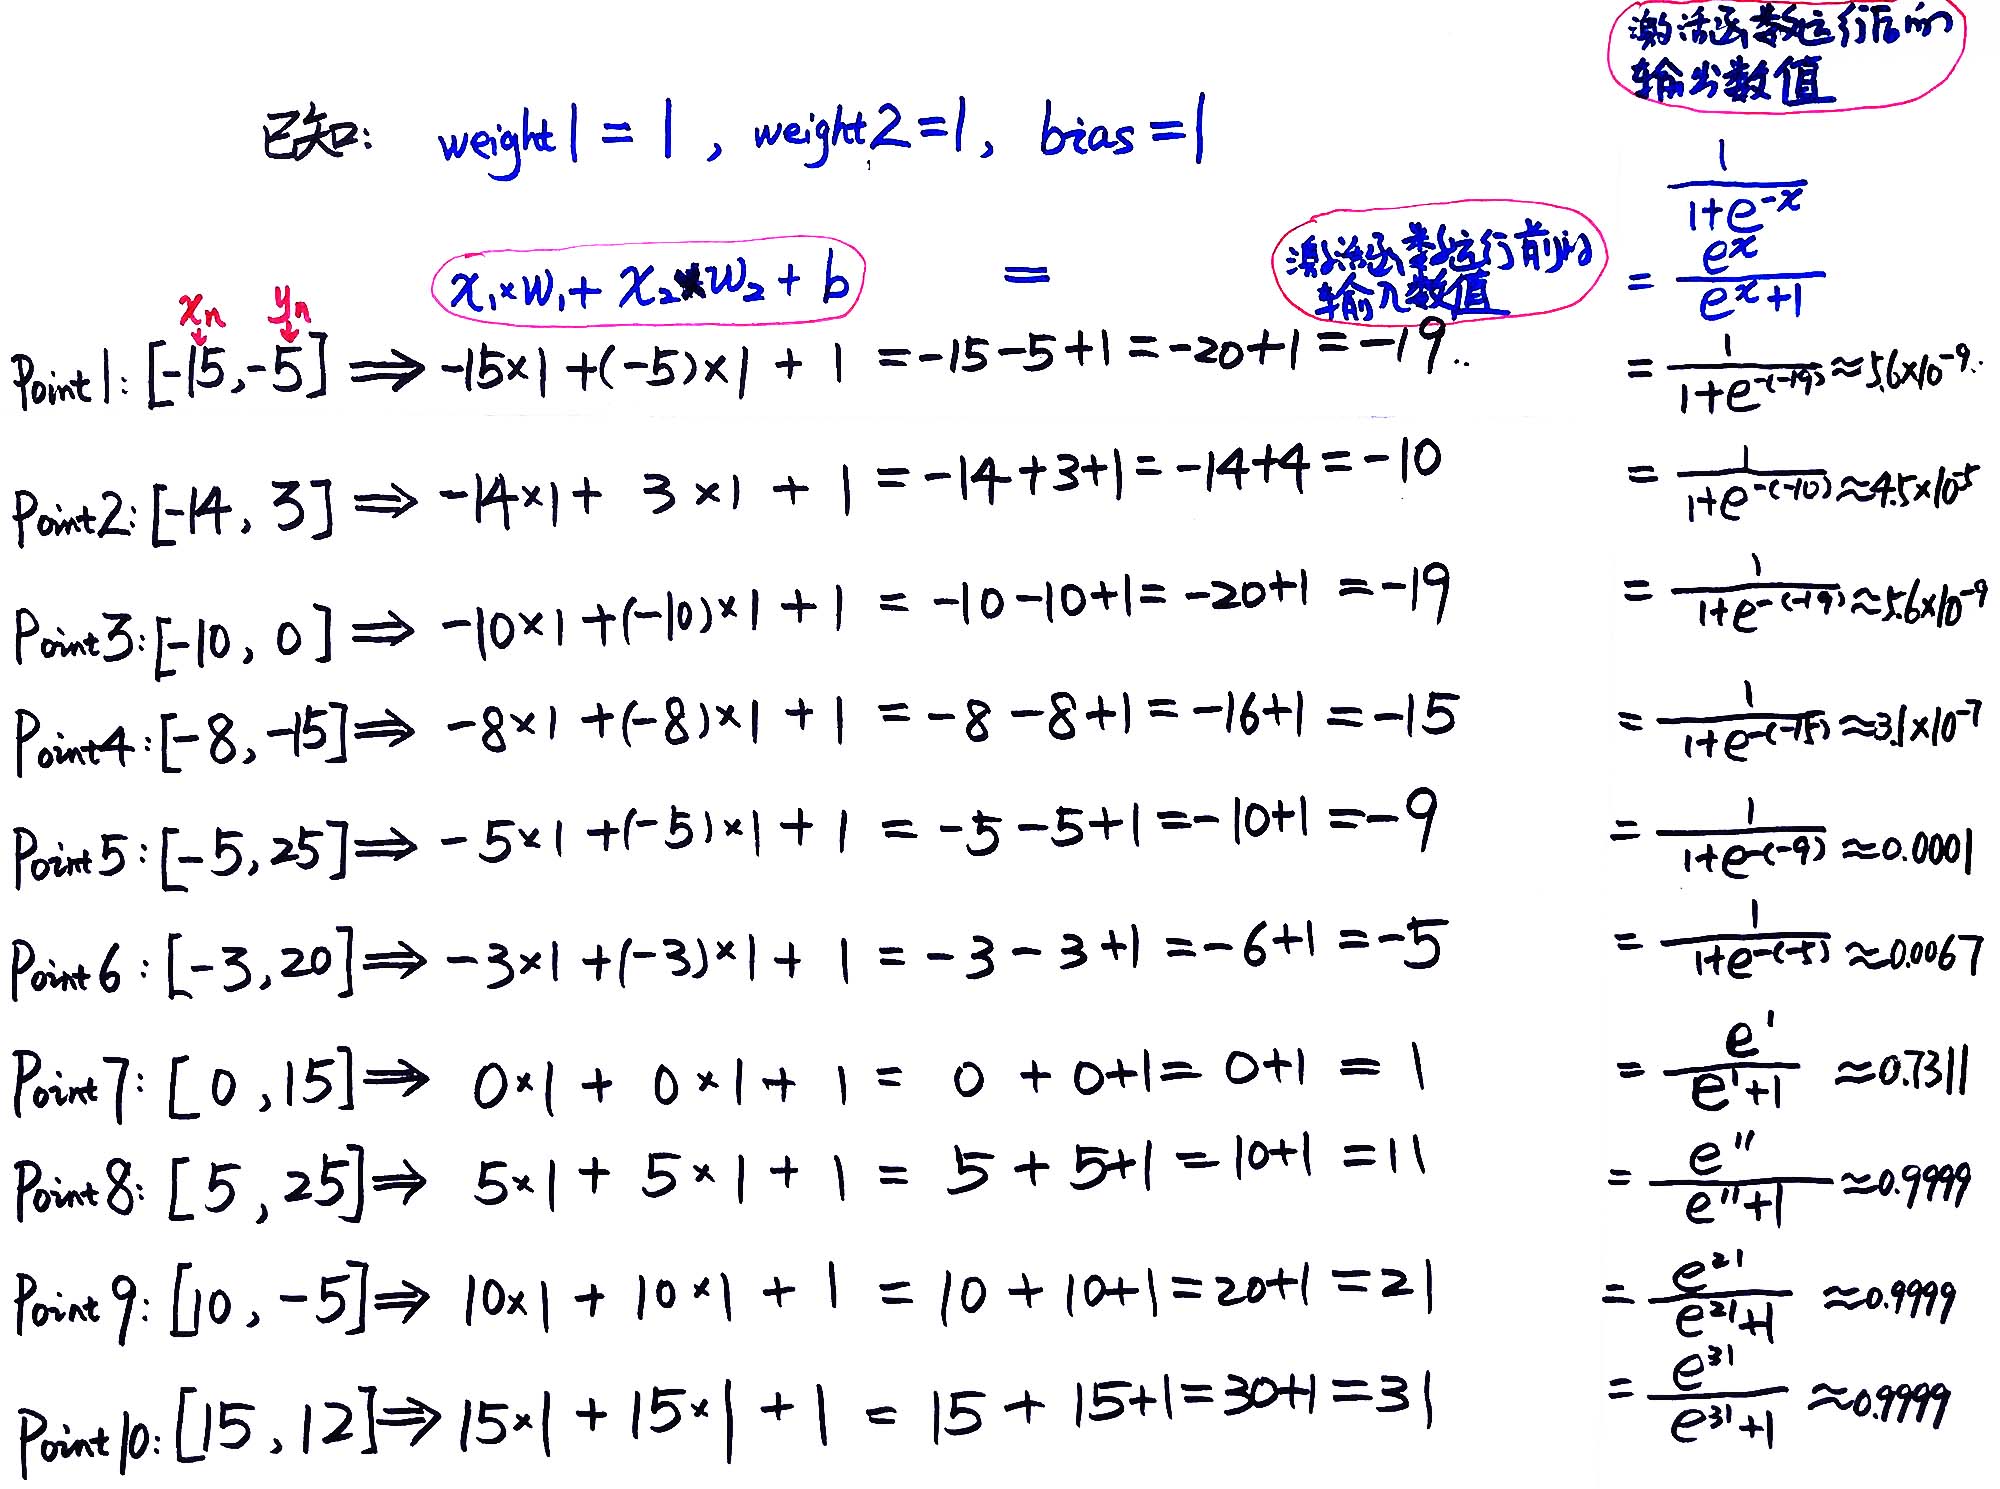 激活函数运行后的
输出数值
已知: weight1 = 1 , weight2 = 1, bias = 1
1/(1+e^-x)
x₁×w₁ + x₂×w₂ + b =
激活函数运行前的
输入数值
= e^x/(e^x+1)
xn yn
Point1: [-15,-5] ⇒ -15×1 +(-5)×1 + 1 = -15-5+1 = -20+1 = -19.. = 1/(1+e^-(-19)) ≈ 5.6×10^-9..
Point2: [-14, 3] ⇒ -14×1 + 3×1 + 1 = -14+3+1 = -14+4 = -10 = 1/(1+e^-(-10)) ≈ 4.5×10^-5
Point3: [-10, 0] ⇒ -10×1 +(-10)×1 + 1 = -10-10+1 = -20+1 = -19 = 1/(1+e^-(-19)) ≈ 5.6×10^-9
Point4: [-8, -15] ⇒ -8×1 +(-8)×1 + 1 = -8-8+1 = -16+1 = -15 = 1/(1+e^-(-15)) ≈ 3.1×10^-7
Point5: [-5, 25] ⇒ -5×1 +(-5)×1 + 1 = -5-5+1 = -10+1 = -9 = 1/(1+e^-(-9)) ≈ 0.0001
Point6: [-3, 20] ⇒ -3×1 +(-3)×1 + 1 = -3-3+1 = -6+1 = -5 = 1/(1+e^-(-5)) ≈ 0.0067
Point7: [0, 15] ⇒ 0×1 + 0×1 + 1 = 0+0+1 = 0+1 = 1 = e^1/(e^1+1) ≈ 0.7311
Point8: [5, 25] ⇒ 5×1 + 5×1 + 1 = 5+5+1 = 10+1 = 11 = e^11/(e^11+1) ≈ 0.9999
Point9: [10, -5] ⇒ 10×1 + 10×1 + 1 = 10+10+1 = 20+1 = 21 = e^21/(e^21+1) ≈ 0.9999
Point10: [15, 12] ⇒ 15×1 + 15×1 + 1 = 15+15+1 = 30+1 = 31 = e^31/(e^31+1) ≈ 0.9999